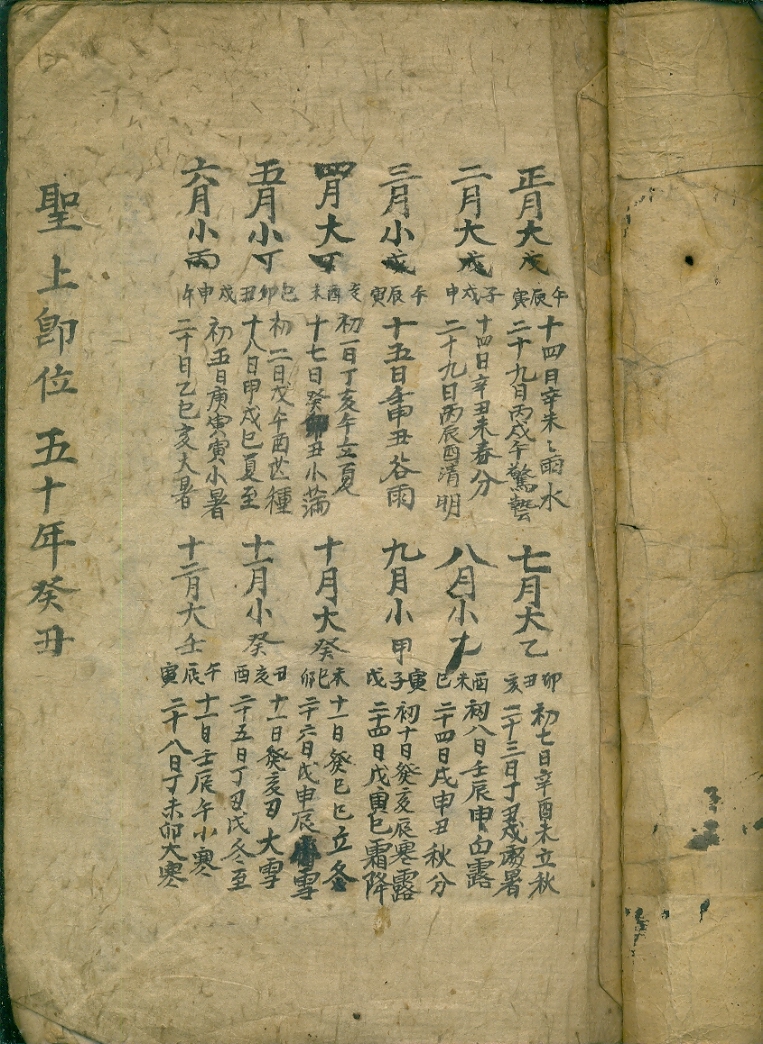 正月大戊
寅辰午
十四日辛未〻雨水
二十九日丙戌午驚蟄
二月大戊
申戌子
十四日辛丑未春分
二十九日丙辰酉清明
三月小戊
寅辰午
十五日壬申丑谷雨
四月大丁
未酉亥
初一日丁亥午立夏
十七日癸卯丑小滿
五月小丁
丑卯巳
初二日戊午酉芒種
十八日甲戌巳夏至
六月小丙
午申戌
初五日庚寅寅小暑
二十日乙巳亥大暑
七月大乙
亥丑卯
初七日辛酉未立秋
二十三日丁丑戌處暑
八月小
巳未酉
初八日壬辰申白露
二十四日戊申丑秋分
九月小甲
戌子寅
初十日癸亥辰寒露
二十四日戊寅巳霜降
十月大癸
卯巳未
十一日癸巳巳立冬
二十六日戊申辰雪
十一月小癸
酉亥丑
十一日癸亥丑大雪
二十五日丁丑戌冬至
十二月大壬
寅辰午
十一日壬辰午小寒
二十八日丁未卯大寒
聖上卽位五十年癸丑